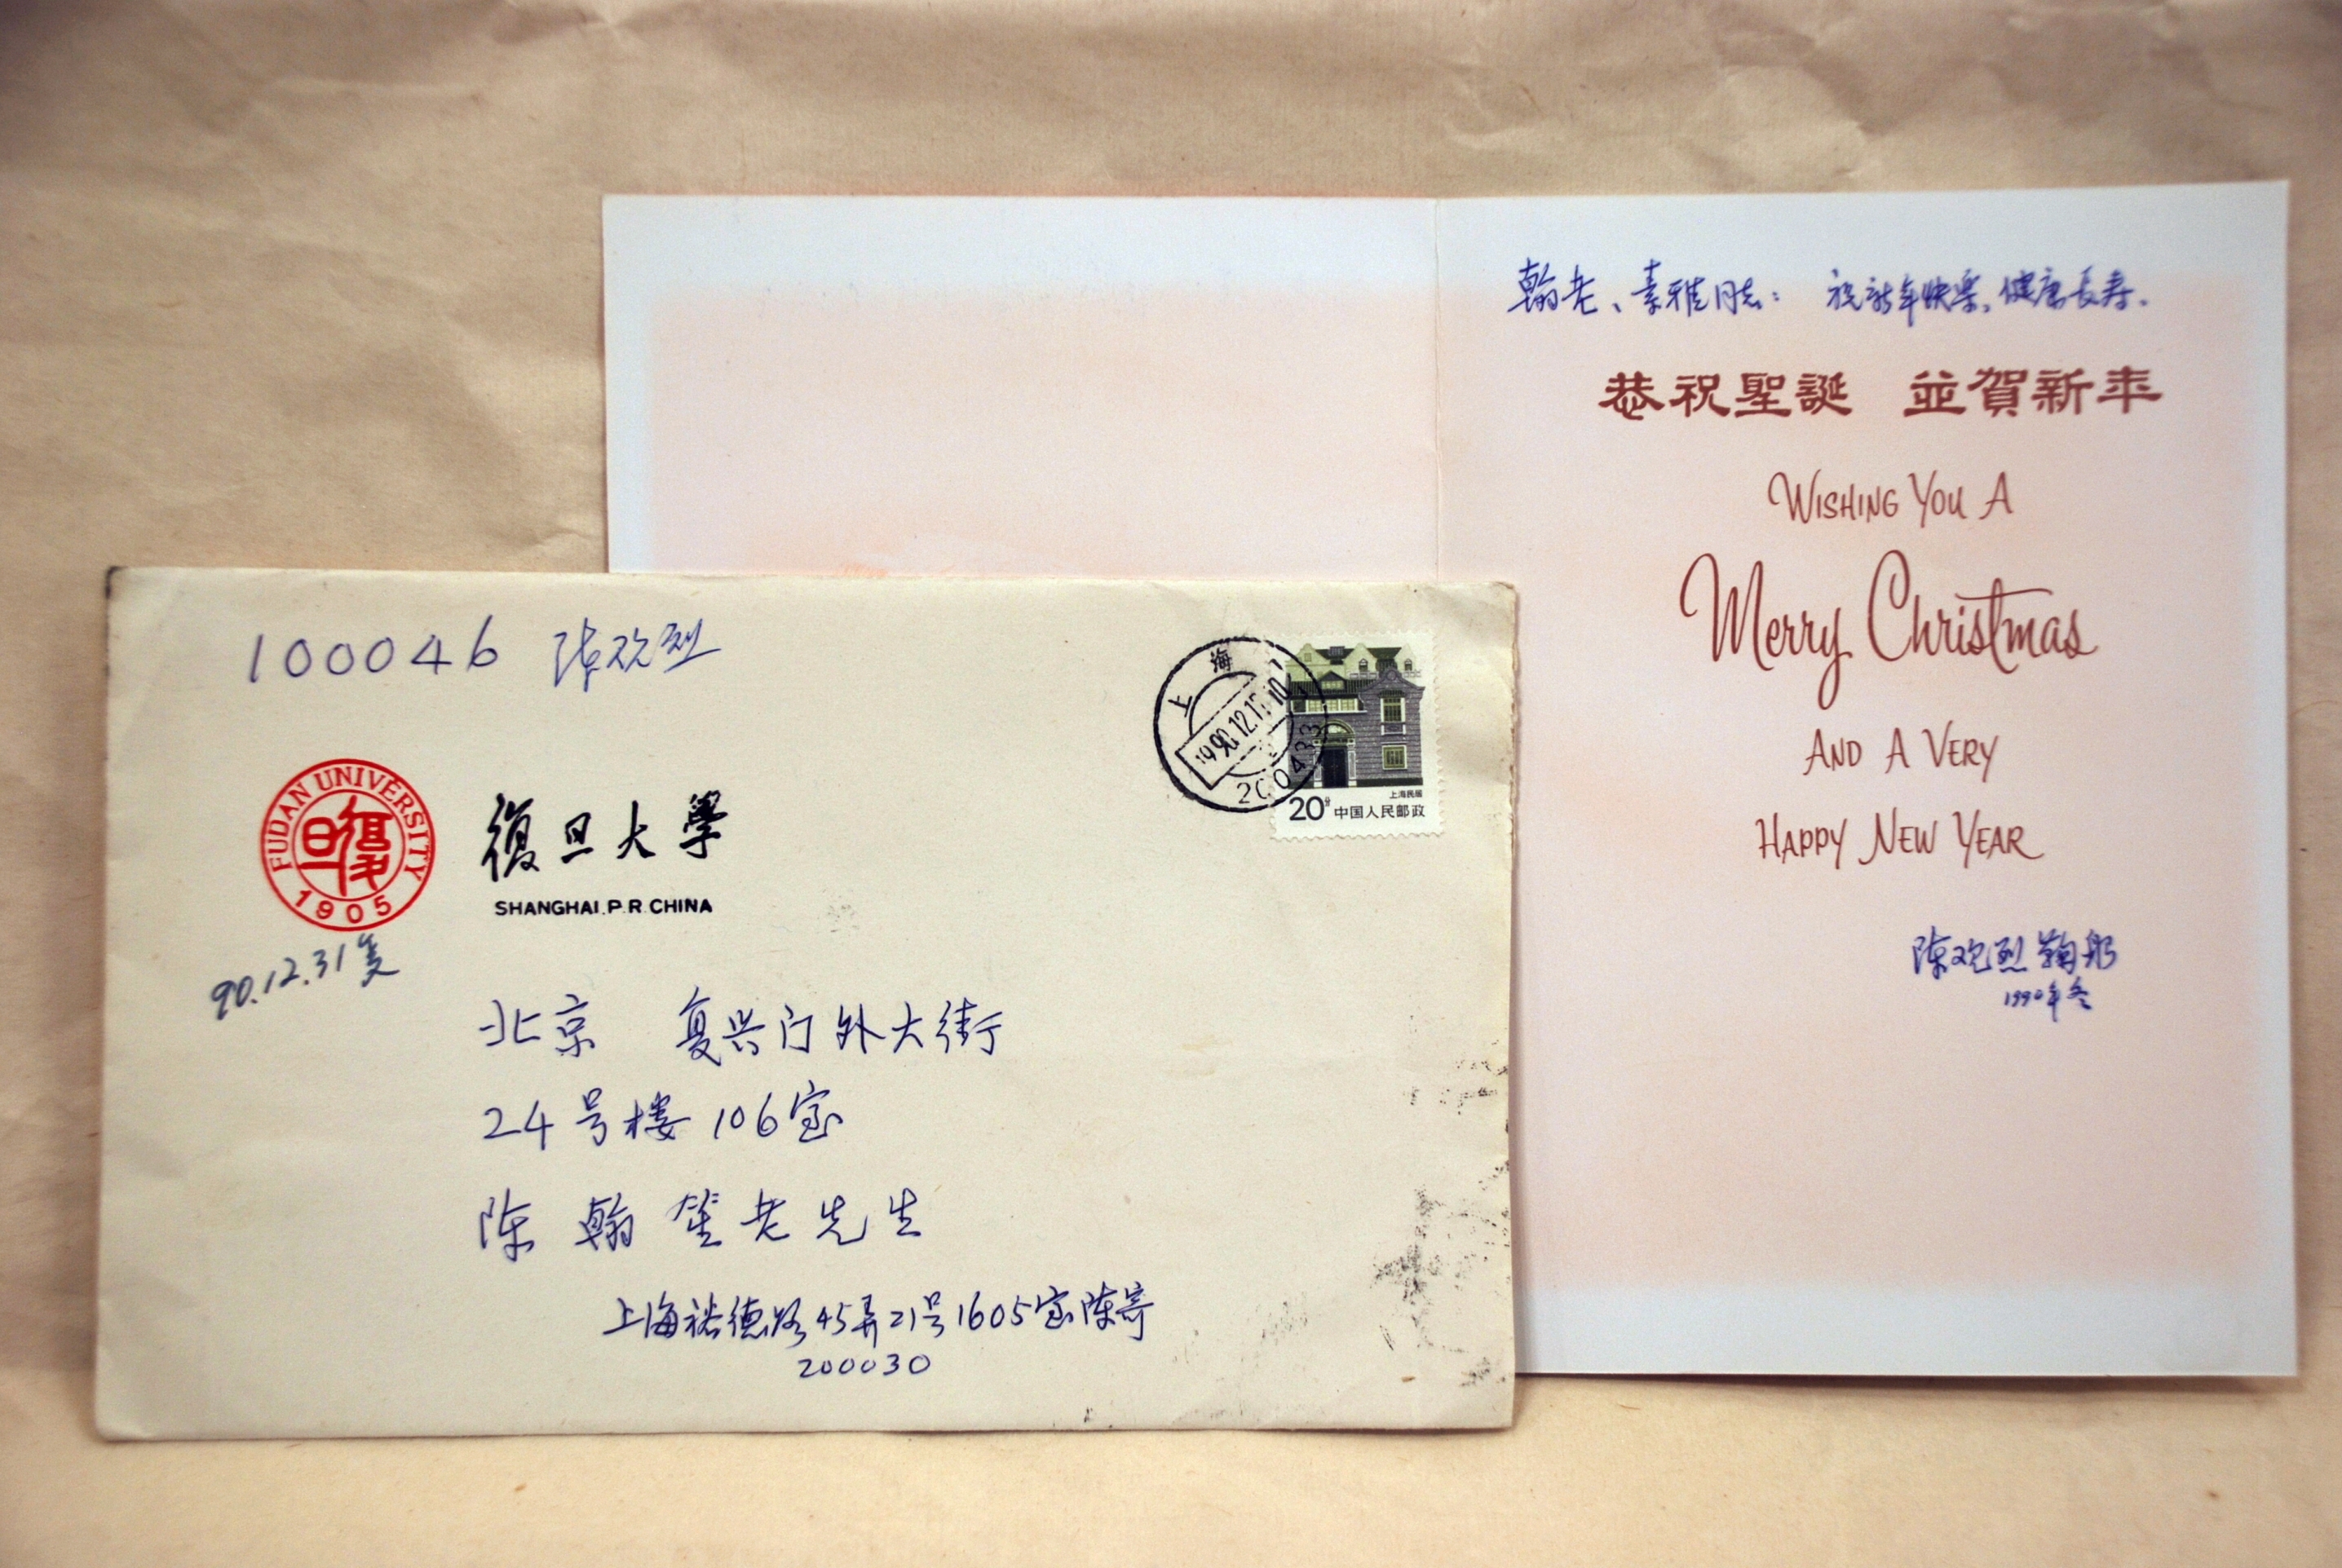 100046 陈欢烈
上海
1990.12.1
200433
上海民居
20分 中国人民邮政
FUDAN UNIVERSITY
復旦
1905
復旦大學
SHANGHAI.P.R.CHINA
90.12.31复
北京 复兴门外大街
24号楼106室
陈翰笙老先生
上海裕德路45弄21号1605室陈寄
200030
翰老、素雅同志: 祝新年快乐,健康長寿。
恭祝聖誕 並賀新年
WISHING YOU A
Merry Christmas
AND A VERY
HAPPY NEW YEAR
陈欢烈鞠躬
1990年冬